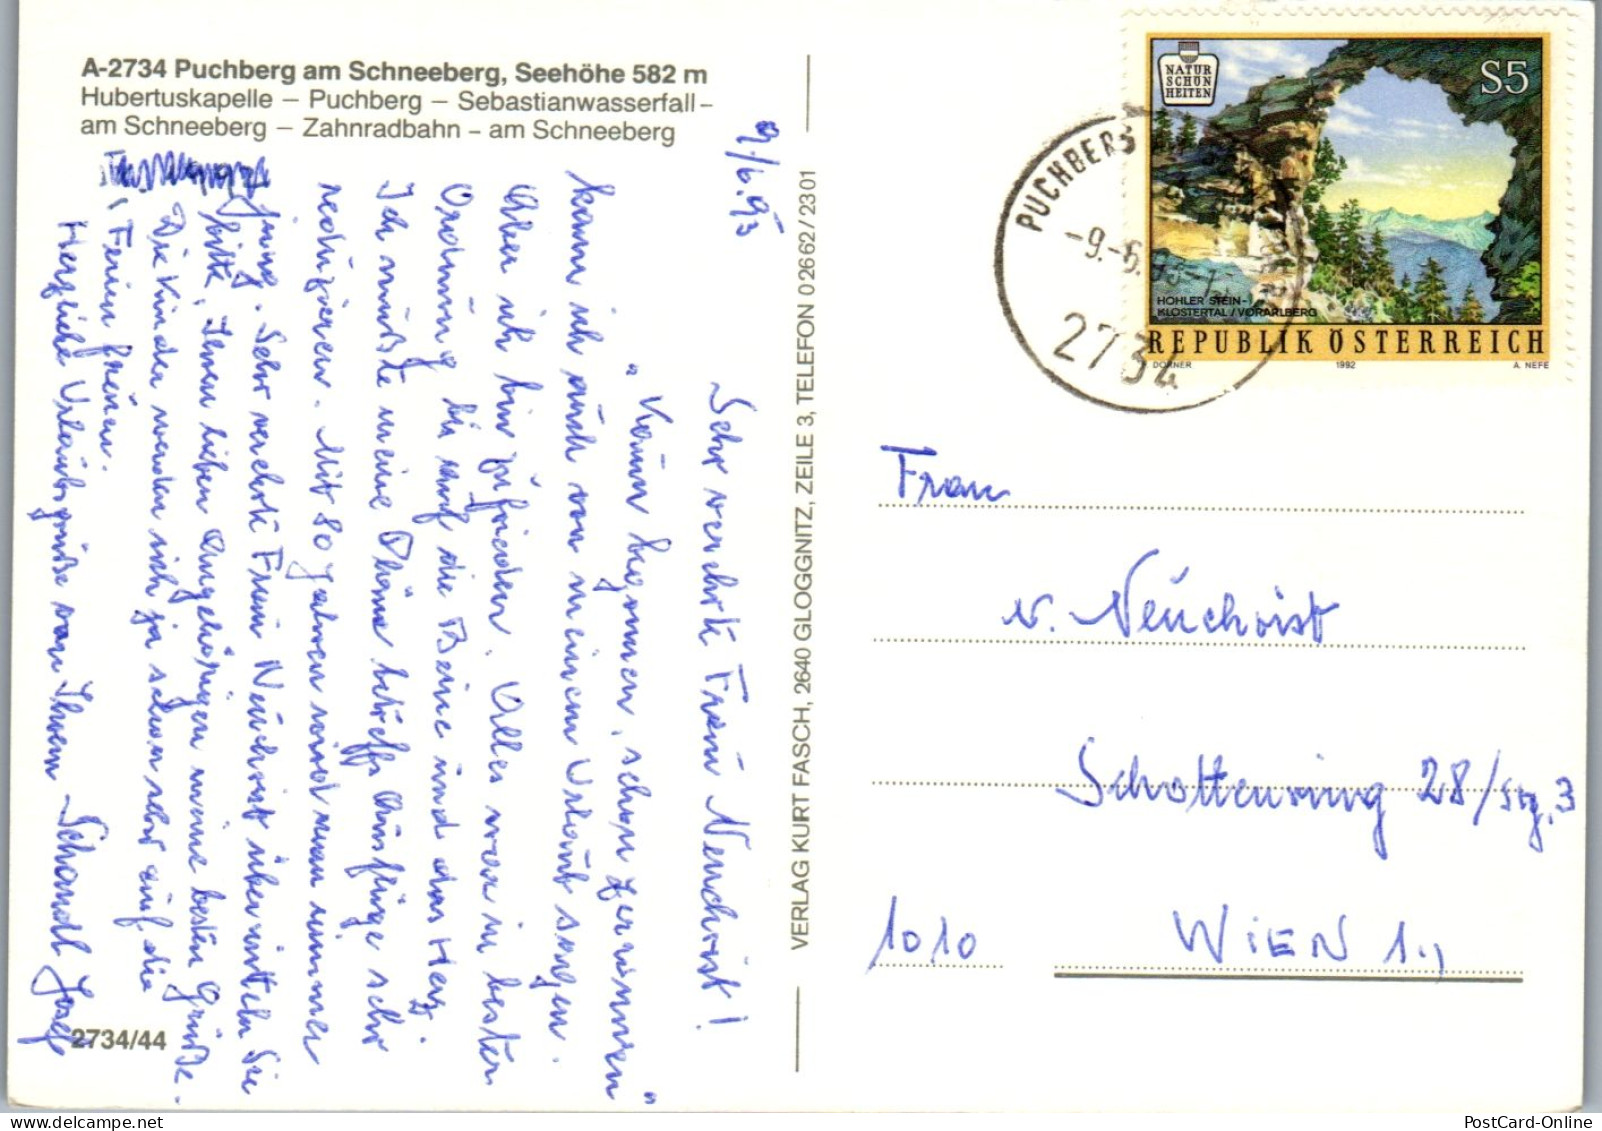 A-2734 Puchberg am Schneeberg, Seehöhe 582 m
Hubertuskapelle – Puchberg – Sebastianwasserfall –
am Schneeberg – Zahnradbahn – am Schneeberg
9/6.93
Sehr verehrte Frau Neuchrist!
"Kaum begonnen, schon zerronnen"
kann ich auch von meinem Urlaub sagen.
Aber ich bin zufrieden. Alles war in bester
Ordnung bis auf die Beine und das Herz.
Ich müßte meine Pläne betreffs Ausflüge sehr
reduzieren. Mit 80 Jahren wird man nimmer
jung. Sehr verehrte Frau Neuchrist übermitteln Sie
bitte, Ihren lieben Angehörigen meine besten Grüße.
Die Kinder werden sich ja schon sehr auf die
Ferien freuen.
Herzliche Urlaubsgrüße von Ihrem Schandl Josef
2734/44
VERLAG KURT FASCH, 2640 GLOGGNITZ, ZEILE 3, TELEFON 0 26 62 / 23 01
NATUR
SCHÖN
HEITEN
S5
HOHLER STEIN-
KLOSTERTAL/VORARLBERG
REPUBLIK ÖSTERREICH
DORNER 1992 A. NEFE
PUCHBERG
-9.-6.93
2734
Frau
N. Neuchrist
Schottenring 28/Stg. 3
1010 WIEN 1.,
PostCard-Online